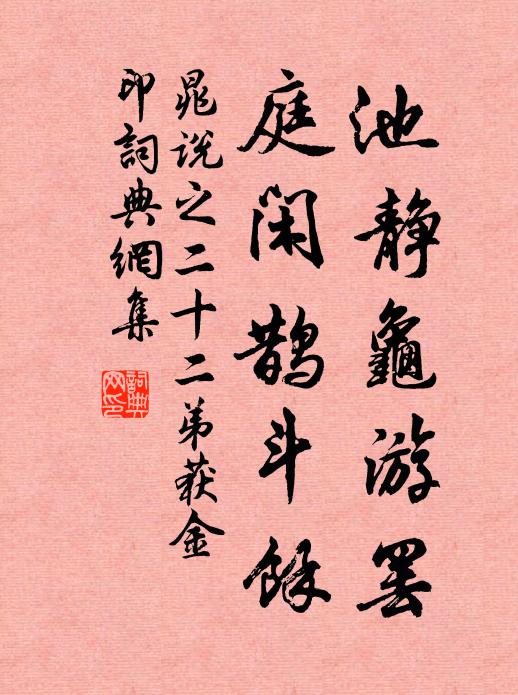 池静龜游罢
庭闲鵲斗餘
晁说之二十二弟获金
印詞典網集
詞典
网印